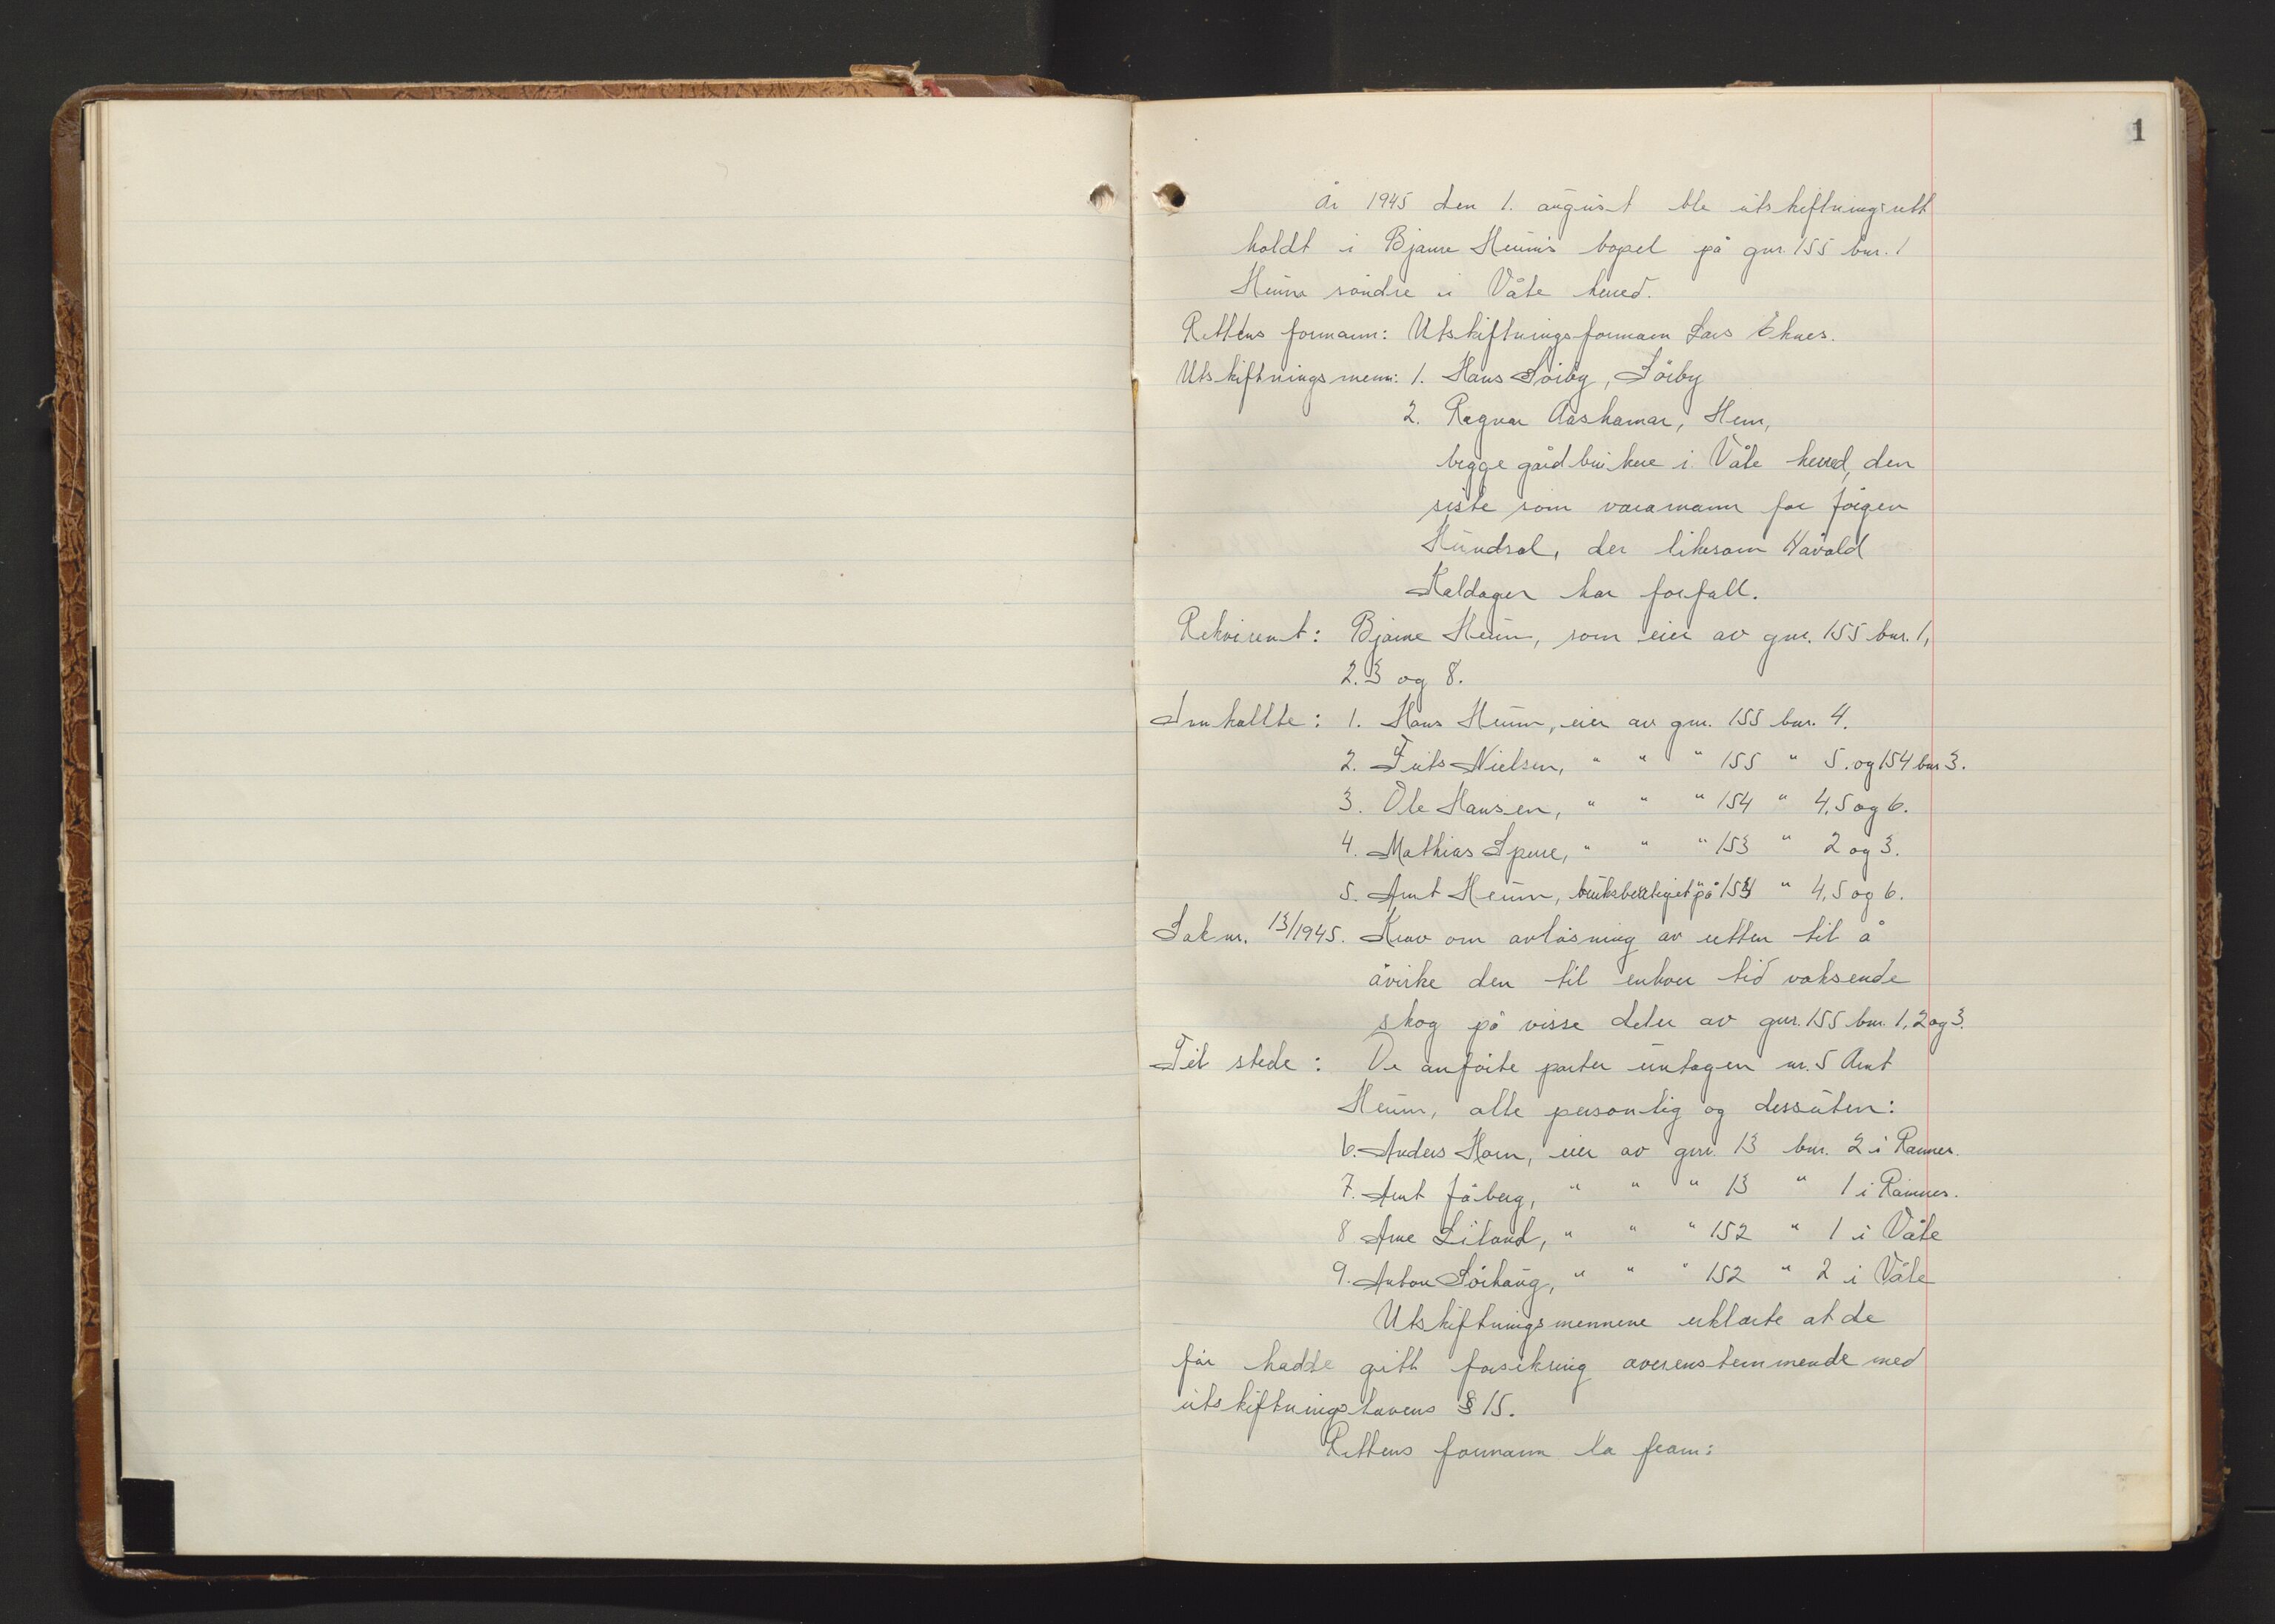 1
År 1945 den 1. august ble utskiftningsrett
holdt i Bjarne Heum's bopel på gnr. 155 bnr. 1
Heum söndre i Våle herred.
Rettens formann: Utskiftningsformann Lars Eknes.
Utskiftningsmenn: 1. Hans Sörby, Sörby
2. Ragnar Aashamar, Hem,
begge gårdbrukere i Våle herred, den
siste som varamann for Jörgen
Hundsal, der likesom Harald
Kaldager har forfall.
Rekvirent: Bjarne Heum, som eier av gnr. 155 bnr. 1,
2. 3 og 8.
Innkallte: 1. Hans Heum, eier av gnr. 155 bnr. 4.
2. Frits Nielsen, " " " 155 " 5. og 154 bnr 3.
3. Ole Hansen, " " " 154 " 4,5 og 6.
4. Mathias Sperre, " " " 153 " 2 og 3.
5. Arnt Heum, bruksberettiget på 154 " 4,5 og 6.
Sak nr. 13/1945. Krav om avlösning av retten til å
avirke den til enhver tid voksende
skog på visse deler av gnr. 155 bnr. 1, 2 og 3.
Til stede: De anförte parter untagen nr. 5 Arnt
Heum, alle personlig og dessuten:
6. Anders Horn, eier av gnr. 13 bnr. 2 i Ramnes.
7. Arnt Jåberg, " " " 13 " 1 i Ramnes.
8 Arne Liland, " " " 152 " 1 i Våle
9. Anton Sörhaug, " " " 152 " 2 i Våle
Utskiftningsmennene erklærte at de
för hadde gitt forsikring overensstemmende med
utskiftningslovens § 15.
Rettens formann la fram: